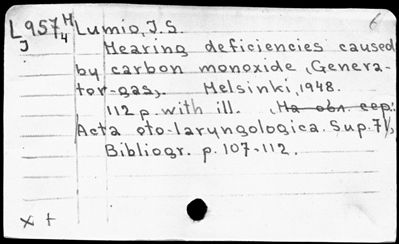 L957 H/4 Lumio, J.S.
J
Hearing deficiencies caused
by carbon monoxide (Genera-
tor-gas). Helsinki, 1948.
112 p. with ill. (На обл. сер.:
Acta oto-laryngologica. Sup. 71),
Bibliogr. p. 107-112.
x +